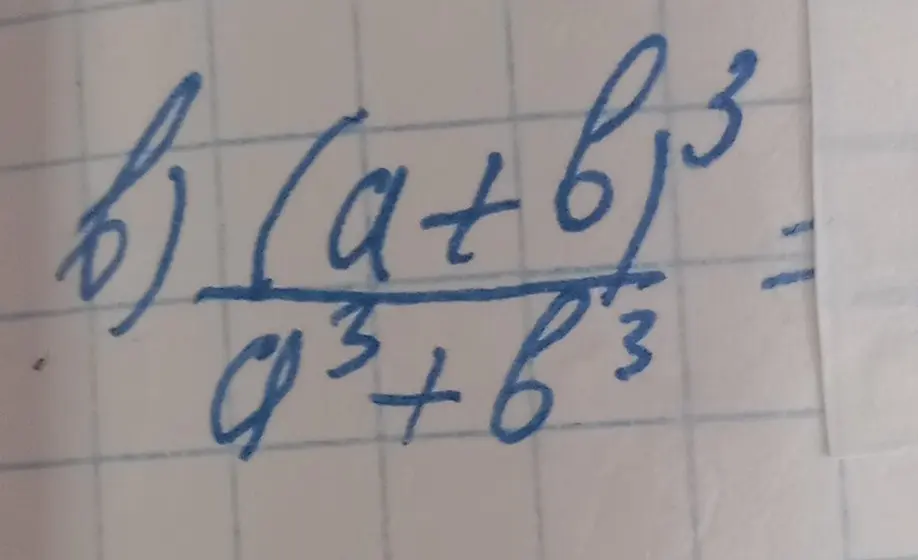 в) (a+b)³
a³+b³ =